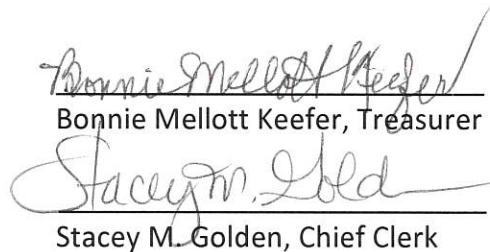 Bonnie Mellott Keefer
Bonnie Mellott Keefer, Treasurer
Stacey M. Gold
Stacey M. Golden, Chief Clerk